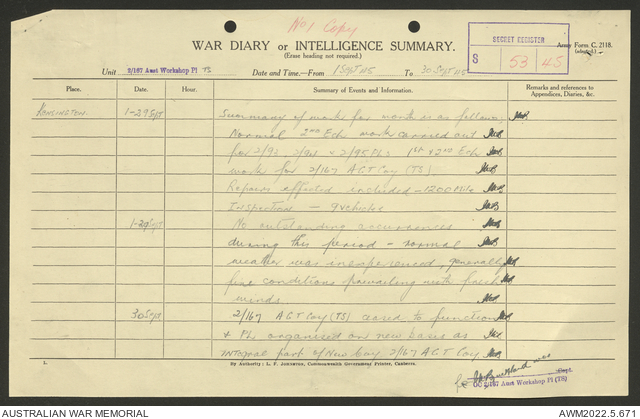 No 1 Copy
WAR DIARY or INTELLIGENCE SUMMARY.
(Erase heading not required.)
SECRET REGISTER
S 53 45
Army Form C. 2118.
(adapted.)
Unit 2/167 Aust Workshop Pl TS
Date and Time.—From 1 Sept 45 To 30 Sept 45
Place. Date. Hour. Summary of Events and Information. Remarks and references to Appendices, Diaries, &c.
KENSINGTON. 1-29 Sept Summary of work for month is as follows,
Normal 2nd Ech work carried out
for 2/93 2/94 & 2/95 Pls 1st & 2nd Ech
work for 2/167 AGT Coy (TS)
Repairs effected included - 1200 Mile
Inspection - 9 vehicles
1-29 Sept No outstanding occurrences
during this period - normal
weather was inexperienced, generally
fine conditions prevailing with fresh
winds.
30 Sept 2/167 AGT Coy (TS) ceased to function
& Pls organised on new basis as
integral part of New Coy 2/167 AGT Coy
L
By Authority: L. F. Johnston, Commonwealth Government Printer, Canberra.
Capt.
OC 2/167 Aust Workshop Pl (TS)
AUSTRALIAN WAR MEMORIAL
AWM2022.5.671